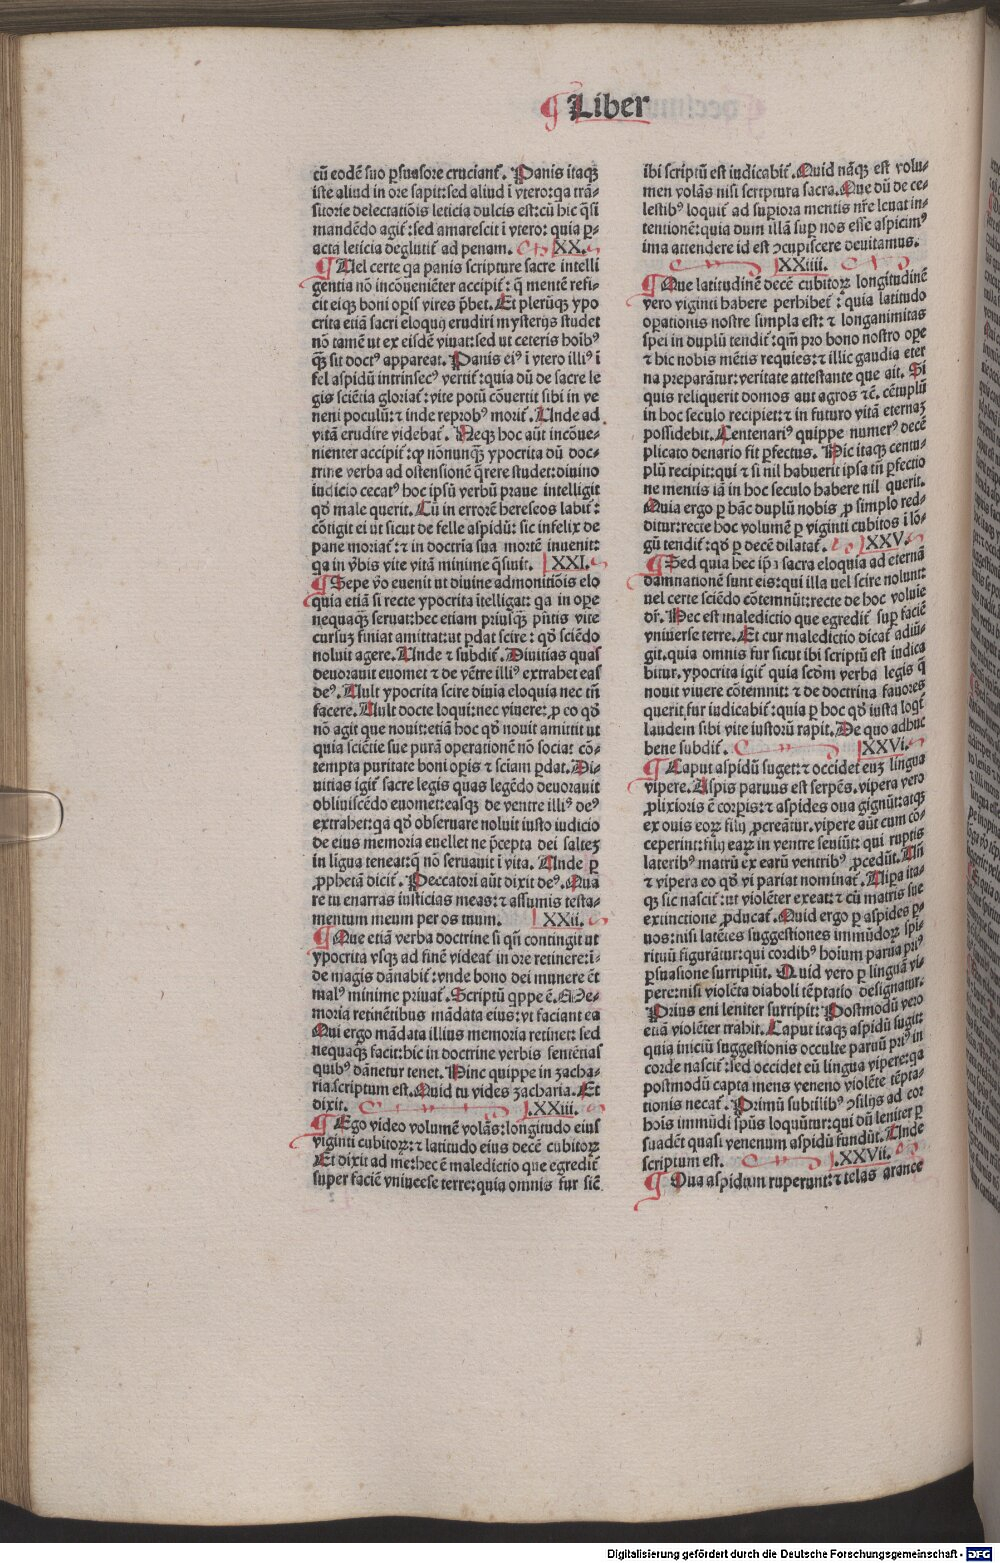 ¶ Liber
cū eodē suo ꝑsuasore cruciant᷑. Panis itaqꝫ
iste aliud in ore sapit: sed aliud ī vtero: qꝛ trā-
sitorie delectatiōis leticia dulcis est: cū hic q̄si
mandēdo agit᷑: sed amarescit ī vtero: quia ꝑ-
acta leticia deglutit᷑ ad penam. XX.
¶ Uel certe qꝛ panis scripture sacre intelli
gentia nō incōueniēter accipit᷑: q̄ mentē refi-
cit eiqꝫ boni oꝑis vires p̄bet. Et plerūqꝫ ypo
crita etiā sacri eloquij erudiri mysterijs studet
nō tamē ut ex eisdē viuat: sed ut ceteris hoībꝰ
qꝫ sit doctꝰ appareat. Panis eiꝰ ī vtero illiꝰ ī
fel aspidū intrinsecꝰ vertit᷑: quia dū de sacre le
gis sciētia gloriat᷑: vite potū cōuertit sibi in ve
neni poculū: ⁊ inde reprobꝰ morit᷑. Unde ad
vitā erudire videbat᷑. Neqꝫ hoc aūt incōue-
nienter accipit᷑: ꝙ nōnunqꝫ ypocrita dū doc-
trine verba ad ostensionē q̄rere studet: diuino
iudicio cecatꝰ hoc ipsū verbū praue intelligit
qd̄ male querit. Cū in errorē hereseos labit᷑:
cōtigit ei ut sicut de felle aspidū: sic infelix de
pane moriat᷑: ⁊ in doctrīa sua mortē inuenit:
qꝛ in v̄bis vite vitā minime q̄siuit. XXI.
¶ Sepe v̄o euenit ut diuine admonitiōis elo
quia etiā si recte ypocrita ītelligat: qꝛ in oꝑe
nequaqꝫ seruat: hec etiam priusqꝫ p̄ntis vite
cursuꝫ finiat amittat: ut ꝑdat scire: qd̄ sciēdo
noluit agere. Unde ⁊ subdit᷑. Diuitias quas
deuorauit euomet ⁊ de vētre illiꝰ extrahet eas
deꝰ. Uult ypocrita scire diuīa eloquia nec tn̄
facere. Uult docte loqui: nec viuere: ꝓ eo qd̄
nō agit que nouit: etiā hoc qd̄ nouit amittit ut
quia sciētie sue purā operationē nō sociat cō-
tempta puritate boni oꝑis ⁊ sciam ꝑdat. Di-
uitias igit᷑ sacre legis quas legēdo deuorauit
obliuiscēdo euomet: easqꝫ de ventre illiꝰ deꝰ
extrahet: qꝛ qd̄ obseruare noluit iusto iudicio
de eius memoria euellet ne p̄cepta dei salteꝫ
in līgua teneat: q̄ nō seruauit ī vita. Unde ꝑ
ꝓphetā dicit᷑. Peccatori aūt dixit deꝰ. Qua
re tu enarras iusticias meas: ⁊ assumis testa-
mentum meum per os tuum. XXii.
¶ Que etiā verba doctrine si qn̄ contingit ut
ypocrita vsqꝫ ad finē videat᷑ in ore retinere: ī-
de magis dānabit᷑: vnde bono dei munere ēt
malꝰ minime priuat᷑. Scriptū qppe ē. Me-
moria retinētibus mādata eius: vt faciant ea
Qui ergo mādata illius memoria retinet: sed
nequaqꝫ facit: hic in doctrine verbis sentētias
quibꝰ dānetur tenet. Hinc quippe in zacha-
ria scriptum est. Quid tu vides zacharia. Et
dixit. XXiii.
¶ Ego video volumē volās: longitudo eius
viginti cubitoꝝ: ⁊ latitudo eius decē cubitoꝝ
Et dixit ad me: hec ē maledictio que egredit᷑
super faciē vniuerse terre: quia omnis fur sic̄
ibi scriptū est iudicabit᷑. Quid nāqꝫ est volu-
men volās nisi scriptura sacra. Que dū de ce-
lestibꝰ loquit᷑ ad suꝑiora mentis nr̄e leuat in-
tentionē: quia dum illā suꝑ nos esse aspicimꝰ
ima attendere id est ꝯcupiscere deuitamus.
XXiiii.
¶ Que latitudinē decē cubitoꝝ longitudinē
vero viginti habere perhibet᷑: quia latitudo
oꝑationis nostre simpla est: ⁊ longanimitas
spei in duplū tendit᷑: qm̄ pro bono nostro oꝑe
⁊ hic nobis mētis requies: ⁊ illic gaudia eter
na preparātur: veritate attestante que ait. Si
quis reliquerit domos aut agros ⁊c̄. cētuplū
in hoc seculo recipiet: ⁊ in futuro vitā eternaꝫ
possidebit. Centenariꝰ quippe numerꝰ decē
plicato denario fit ꝑfectus. Hic itaqꝫ centu-
plū recipit: qui ⁊ si nil habuerit ipsa tn̄ ꝑfectio
ne mentis iā in hoc seculo habere nil querit.
Quia ergo ꝑ hāc duplū nobis ꝓ simplo red-
ditur: recte hoc volumē ꝑ viginti cubitos ī lō-
gū tendit᷑: qd̄ ꝑ decē dilatat᷑. XXV.
¶ Sed quia hec ip̄a sacra eloquia ad eternā
damnationē sunt eis: qui illa uel scire nolunt:
uel certe sciēdo cōtemnūt: recte de hoc voluīe
dr̄. Hec est maledictio que egredit᷑ suꝑ faciē
vniuerse terre. Et cur maledictio dicat᷑ adiū-
git. quia omnis fur sicut ibi scriptū est iudica
bitur. ypocrita igit᷑ quia scd̄m verba legis q̄
nouit viuere cōtemnit: ⁊ de doctrina fauores
querit, fur iudicabit᷑: quia ꝑ hoc qd̄ iusta loq̄t᷑
laudem sibi vite iustorū rapit. De quo adhuc
bene subdit᷑. XXVi.
¶ Caput aspidū suget: ⁊ occidet euꝫ lingua
vipere. Aspis paruus est serpēs. vipera vero
ꝓlixioris ē corꝑis: ⁊ aspides oua gignūt: atqꝫ
ex ouis eoꝝ filij ꝓcreātur. vipere aūt cum cō-
ceperint: filij eaꝝ in ventre seuiūt: qui ruptis
lateribꝰ matrū ex earū ventribꝰ ꝓcedūt. Uñ
⁊ vipera eo qd̄ vi pariat nominat᷑. Uipa ita-
qꝫ sic nascit᷑: ut violēter exeat: ⁊ cū matris sue
extinctione ꝓducat᷑. Quid ergo ꝑ aspides ꝑ-
uos: nisi latētes suggestiones immūdoꝝ spi-
rituū figurātur: qui cordibꝰ hoīum parua priꝰ
ꝑsuasione surripiūt. Quid vero ꝑ linguā vi-
pere: nisi violēta diaboli tēptatio designatur.
Prius eni leniter surripit: Postmodū vero
etiā violēter trahit. Caput itaqꝫ aspidū sugit:
quia iniciū suggestionis occulte paruū priꝰ in
corde nascit᷑: sed occidet eū lingua vipere: qꝛ
postmodū capta mens veneno violēte tēpta-
tionis necat᷑. Primū subtilibꝰ ꝯsilijs ad cor
hoīs immūdi sp̄us loquūtur: qui dū leniter ꝑ
suadēt quasi venenum aspidū fundūt. Unde
scriptum est. XXVii.
¶ Oua aspidum ruperunt: ⁊ telas aranee
Digitalisierung gefördert durch die Deutsche Forschungsgemeinschaft - DFG